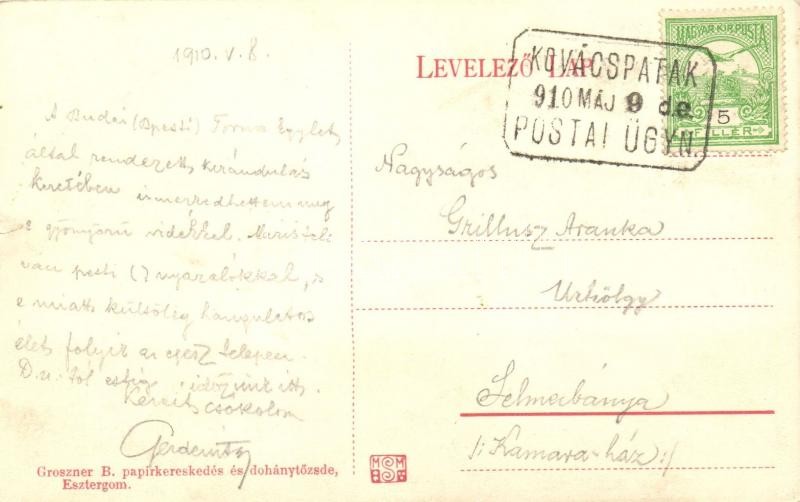 1910. V. 8.
A Budai (Bpesti) Torna Egylet
által rendezett kirándulás
keretében ismerkedhettem meg
e gyönyörű vidékkel. Már is tele
van pesti (?) nyaralókkal, s
e miatt külsőleg hangulatos
élet folyik az egész telepen.
D.u.-tól estig időzünk itt.
Kezeit csókolom
LEVELEZŐ LAP
KOVÁCSPATAK
910 MÁJ 9 de.
POSTAI ÜGYN.
MAGYAR KIR. POSTA
5
FILLÉR
Nagyságos
Grillusz Aranka
Úrhölgy
Selmecbánya
/: Kamara-ház :/
Groszner B. papirkereskedés és dohánytőzsde,
Esztergom.